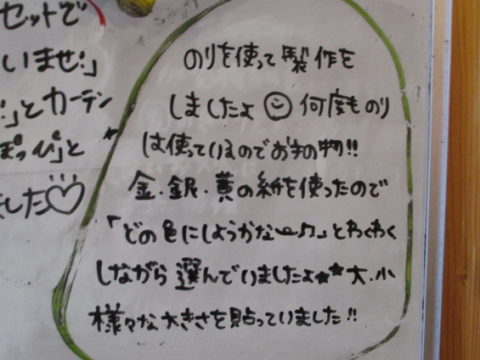 セットで
いませ:」
」とカーテン
ぽっぴ」と
した♡
のりを使って製作を
しましたよ☺何度ものり
は使っているのでお手の物!!
金・銀・黄の紙を使ったので
「どの色にしようかな〜♫」とわくわく
しながら選んでいましたよ★★大・小
様々な大きさを貼っていました!!